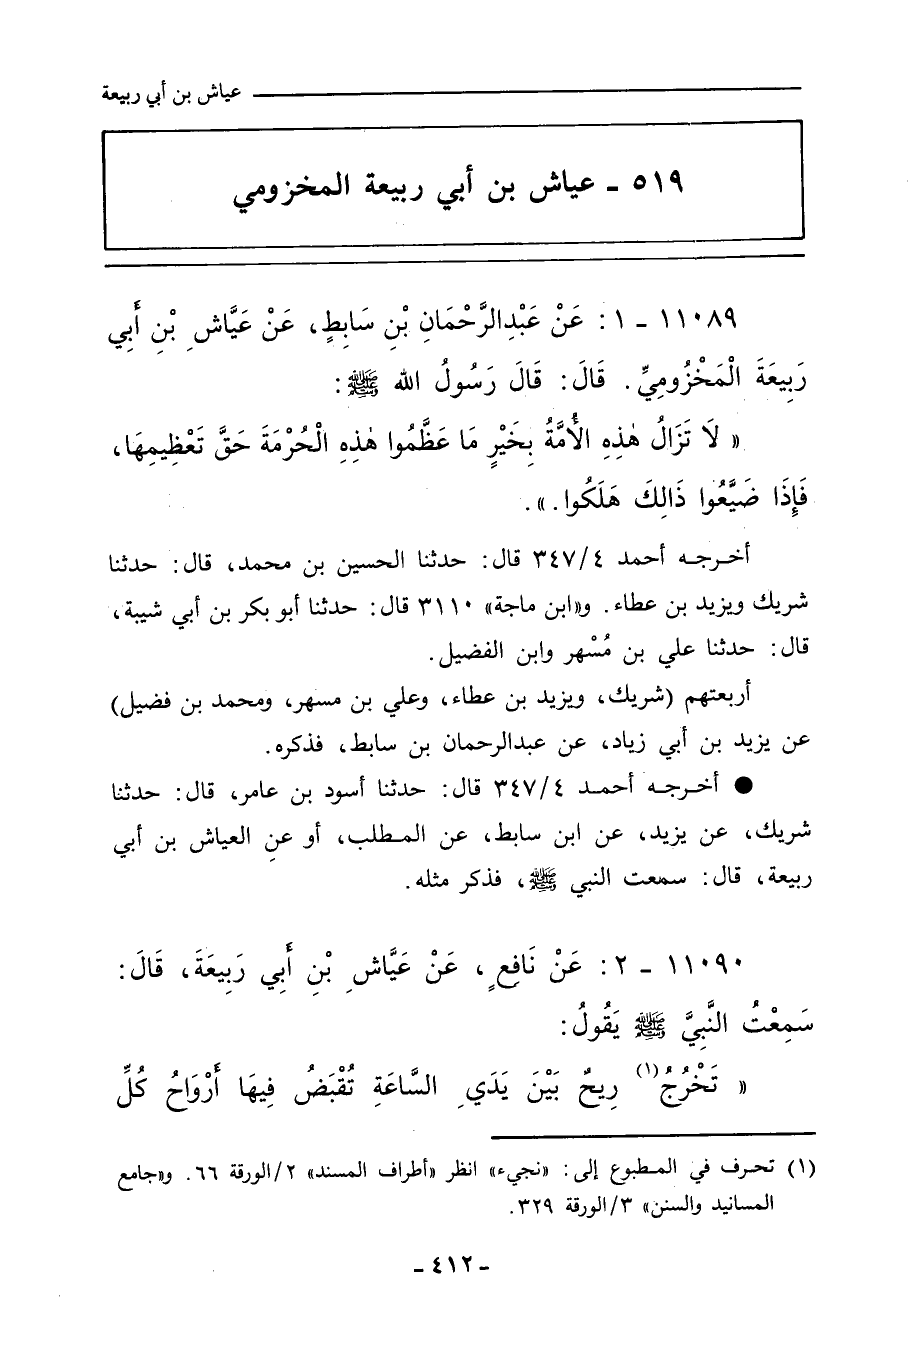 عياش بن أبي ربيعة
٥١٩ - عياش بن أبي ربيعة المخزومي
١١٠٨٩ - ١ : عَنْ عَبْدِالرَّحْمَانِ بْنِ سَابِطٍ، عَنْ عَيَّاشِ بْنِ أَبِي
رَبِيعَةَ الْمَخْزُومِيِّ . قَالَ: قَالَ رَسُولُ الله ﷺ:
« لَا تَزَالُ هٰذِهِ الْأُمَّةُ بِخَيْرٍ مَا عَظَّمُوا هٰذِهِ الْحُرْمَةَ حَقَّ تَعْظِيمِهَا،
فَإِذَا ضَيَّعُوا ذَالِكَ هَلَكُوا. ».
أخرجه أحمد ٣٤٧/٤ قال: حدثنا الحسين بن محمد، قال: حدثنا
شريك ويزيد بن عطاء. و«ابن ماجة» ٣١١٠ قال: حدثنا أبو بكر بن أبي شيبة،
قال: حدثنا علي بن مُسْهر وابن الفضيل.
أربعتهم (شريك، ويزيد بن عطاء، وعلي بن مسهر، ومحمد بن فضيل)
عن يزيد بن أبي زياد، عن عبدالرحمان بن سابط، فذكره.
● أخرجه أحمد ٣٤٧/٤ قال: حدثنا أسود بن عامر، قال: حدثنا
شريك، عن يزيد، عن ابن سابط، عن المطلب، أو عنِ العياش بن أبي
ربيعة، قال: سمعت النبي ﷺ، فذكر مثله.
١١٠٩٠ - ٢ : عَنْ نَافِعٍ، عَنْ عَيَّاشِ بْنِ أَبِي رَبِيعَةَ، قَالَ:
سَمِعْتُ النَّبِيَّ ﷺ يَقُولُ:
« تَخْرُجُ(١) رِيحٌ بَيْنَ يَدَيِ السَّاعَةِ تُقْبَضُ فِيهَا أَرْوَاحُ كُلِّ
(١) تحرف في المطبوع إلى: «نجيء» انظر «أطراف المسند» ٢/الورقة ٦٦. و«جامع
المسانيد والسنن» ٣/الورقة ٣٢٩.
- ٤١٢ -